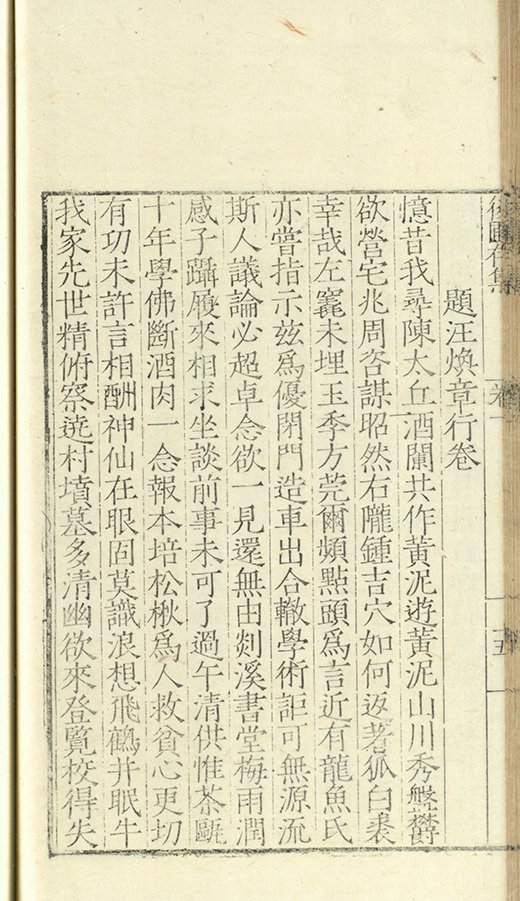 題汪煥章行卷
憶昔我尋陳太丘酒闌共作黃泥遊黃泥山川秀盤欝
欲營宅兆周咨謀昭然右隴鍾吉穴如何返著狐白裘
幸哉左窪未埋玉季方莞爾頻點頭爲言近有龍魚氏
亦嘗指示兹爲優閉門造車出合轍學術詎可無源流
斯人議論必超卓念欲一見還無由剡溪書堂梅雨潤
感子躡履來相求坐談前事未可了過午清供惟茶甌
十年學佛斷酒肉一念報本培松楸爲人救貧心更切
有功未許言相酬神仙在眼固莫識浪想飛鶴并眠牛
我家先世精俯察遶村墳墓多清幽欲來登覽校得失